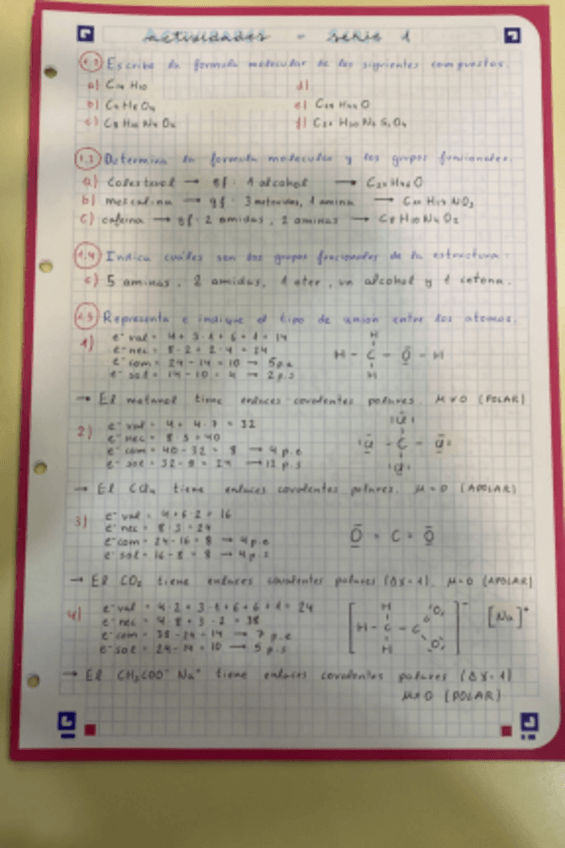 actividades - serie 1
1.2) Escribe la formula molecular de los siguientes compuestos.
a) C₁₄ H₁₀ d)
b) C₄ H₈ O₄ e)
c) C₈ H₁₀ N₄ O₂ f)
1.3) Determina la formula molecular y los grupos funcionales.
a) Colesterol → gf: 1 alcohol → C₂₇ H₄₆ O
b) mescalina → gf: 3 1 amina → C₁₁ H₁₇ NO₃
c) cafeina → gf: 2 amidas, 2 aminas → C₈ H₁₀ N₄ O₂
1.4) Indica cuáles son los grupos funcionales de la estructura:
c) 5 aminas, 2 amidas, 1 eter, un alcohol y 1 cetona.
1.5) Representa e indique el tipo de union entre los atomos.
1) e⁻ val = 4 + 3·1 + 6 + 1 = 14
e⁻ nec = 8·2 + 2·4 = 24
e⁻ com = 24 - 14 = 10 → 5 p.e
e⁻ sol = 14 - 10 = 4 → 2 p.s
H
H - C - O - H
H
→ El metanol tiene enlaces covalentes polares. μ≠0 (POLAR)
2) e⁻ val = 4 + 4·7 = 32
e⁻ nec = 8·5 = 40
e⁻ com = 40 - 32 = 8 → 4 p.e
e⁻ sol = 32 - 8 = 24 → 12 p.s
Cl
Cl - C - Cl
Cl
→ El CCl₄ tiene enlaces covalentes polares. μ=0 (APOLAR)
3) e⁻ val = 4 + 6·2 = 16
e⁻ nec = 8·3 = 24
e⁻ com = 24 - 16 = 8 → 4 p.e
e⁻ sol = 16 - 8 = 8 → 4 p.s
O = C = O
→ El CO₂ tiene enlaces covalentes polares (Δχ=1). μ=0 (APOLAR)
4) e⁻ val = 4·2 + 3·1 + 6 + 6 + 1 = 24
e⁻ nec = 4·8 + 3·2 = 38
e⁻ com = 38 - 24 = 14 → 7 p.e
e⁻ sol = 24 - 14 = 10 → 5 p.s
H O
[H - C - C ]⁻ [Na]⁺
H O
→ El CH₃COO⁻ Na⁺ tiene enlaces covalentes polares (Δχ=1)
μ≠0 (POLAR)